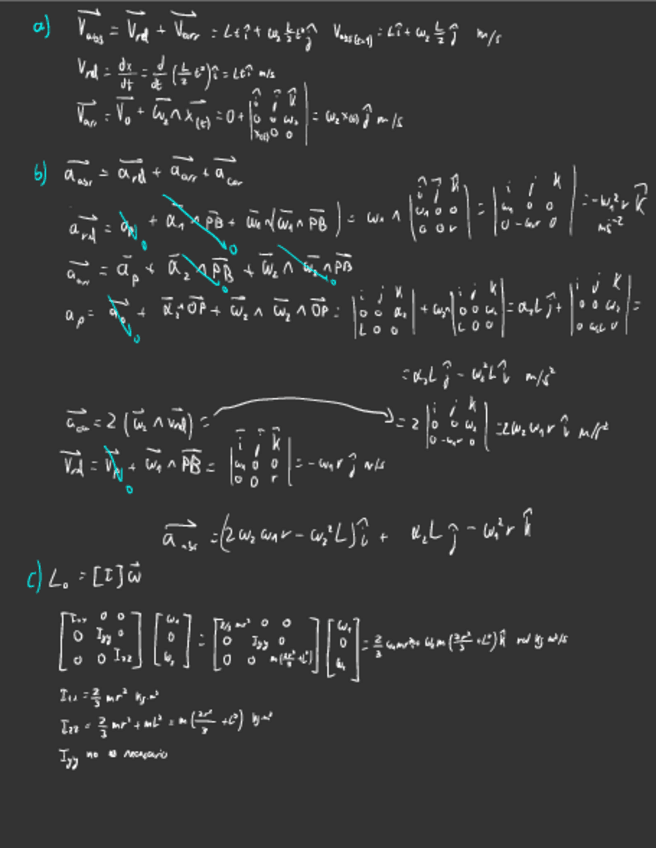 a) V_abs = V_rel + V_arr = Lt î + ω₂ L/2 t² ĵ   V_abs(t=1) = L î + ω₂ L/2 ĵ m/s
V_rel = dx/dt = d/dt (L/2 t²) î = Lt î m/s
V_arr = V_0 + ω₂ ∧ x(t) = 0 + | î ĵ k̂ ; 0 0 ω₂ ; x(t) 0 0 | = ω₂ x(t) ĵ m/s
b) a_abs = a_rel + a_arr + a_cor
a_rel = a_P 0 + α₁ ∧ PB 0 + ω₁ ∧ (ω₁ ∧ PB) = ω₁ ∧ | î ĵ k̂ ; ω₁ 0 0 ; 0 0 r | = | i j k ; ω₁ 0 0 ; 0 -ω₁r 0 | = -ω₁² r k̂ ms⁻²
a_arr = a_P + α₂ ∧ PB 0 + ω₂ ∧ ω₂ ∧ PB 0
a_P = a_0 0 + α₂ ∧ OP + ω₂ ∧ ω₂ ∧ OP = | i j k ; 0 0 α₂ ; L 0 0 | + ω₂ ∧ | i j k ; 0 0 ω₂ ; L 0 0 | = α₂ L ĵ + | i j k ; 0 0 ω₂ ; 0 ω₂L 0 | =
= α₂ L ĵ - ω₂² L î m/s²
a_cor = 2 (ω₂ ∧ V_rel) = = 2 | i j k ; 0 0 ω₂ ; 0 -ω₁r 0 | = 2ω₂ω₁ r î m/s²
V_rel = V_P 0 + ω₁ ∧ PB = | i j k ; ω₁ 0 0 ; 0 0 r | = -ω₁ r ĵ m/s
a_abs = (2ω₂ω₁r - ω₂²L) î + α₂ L ĵ - ω₁² r k̂
c) L_0 = [I] ω
[ I_xx 0 0 ; 0 I_yy 0 ; 0 0 I_zz ] [ ω₁ ; 0 ; ω₂ ] = [ 2/3 mr² 0 0 ; 0 I_yy 0 ; 0 0 m(2r²/3 + L²) ] [ ω₁ ; 0 ; ω₂ ] = 2/3 ω₁mr² î + ω₂ m (2r²/3 + L²) k̂ rad kg m²/s
I_xx = 2/3 mr² kg m²
I_zz = 2/3 mr² + mL² = m (2r²/3 + L²) kg m²
I_yy no es necesario